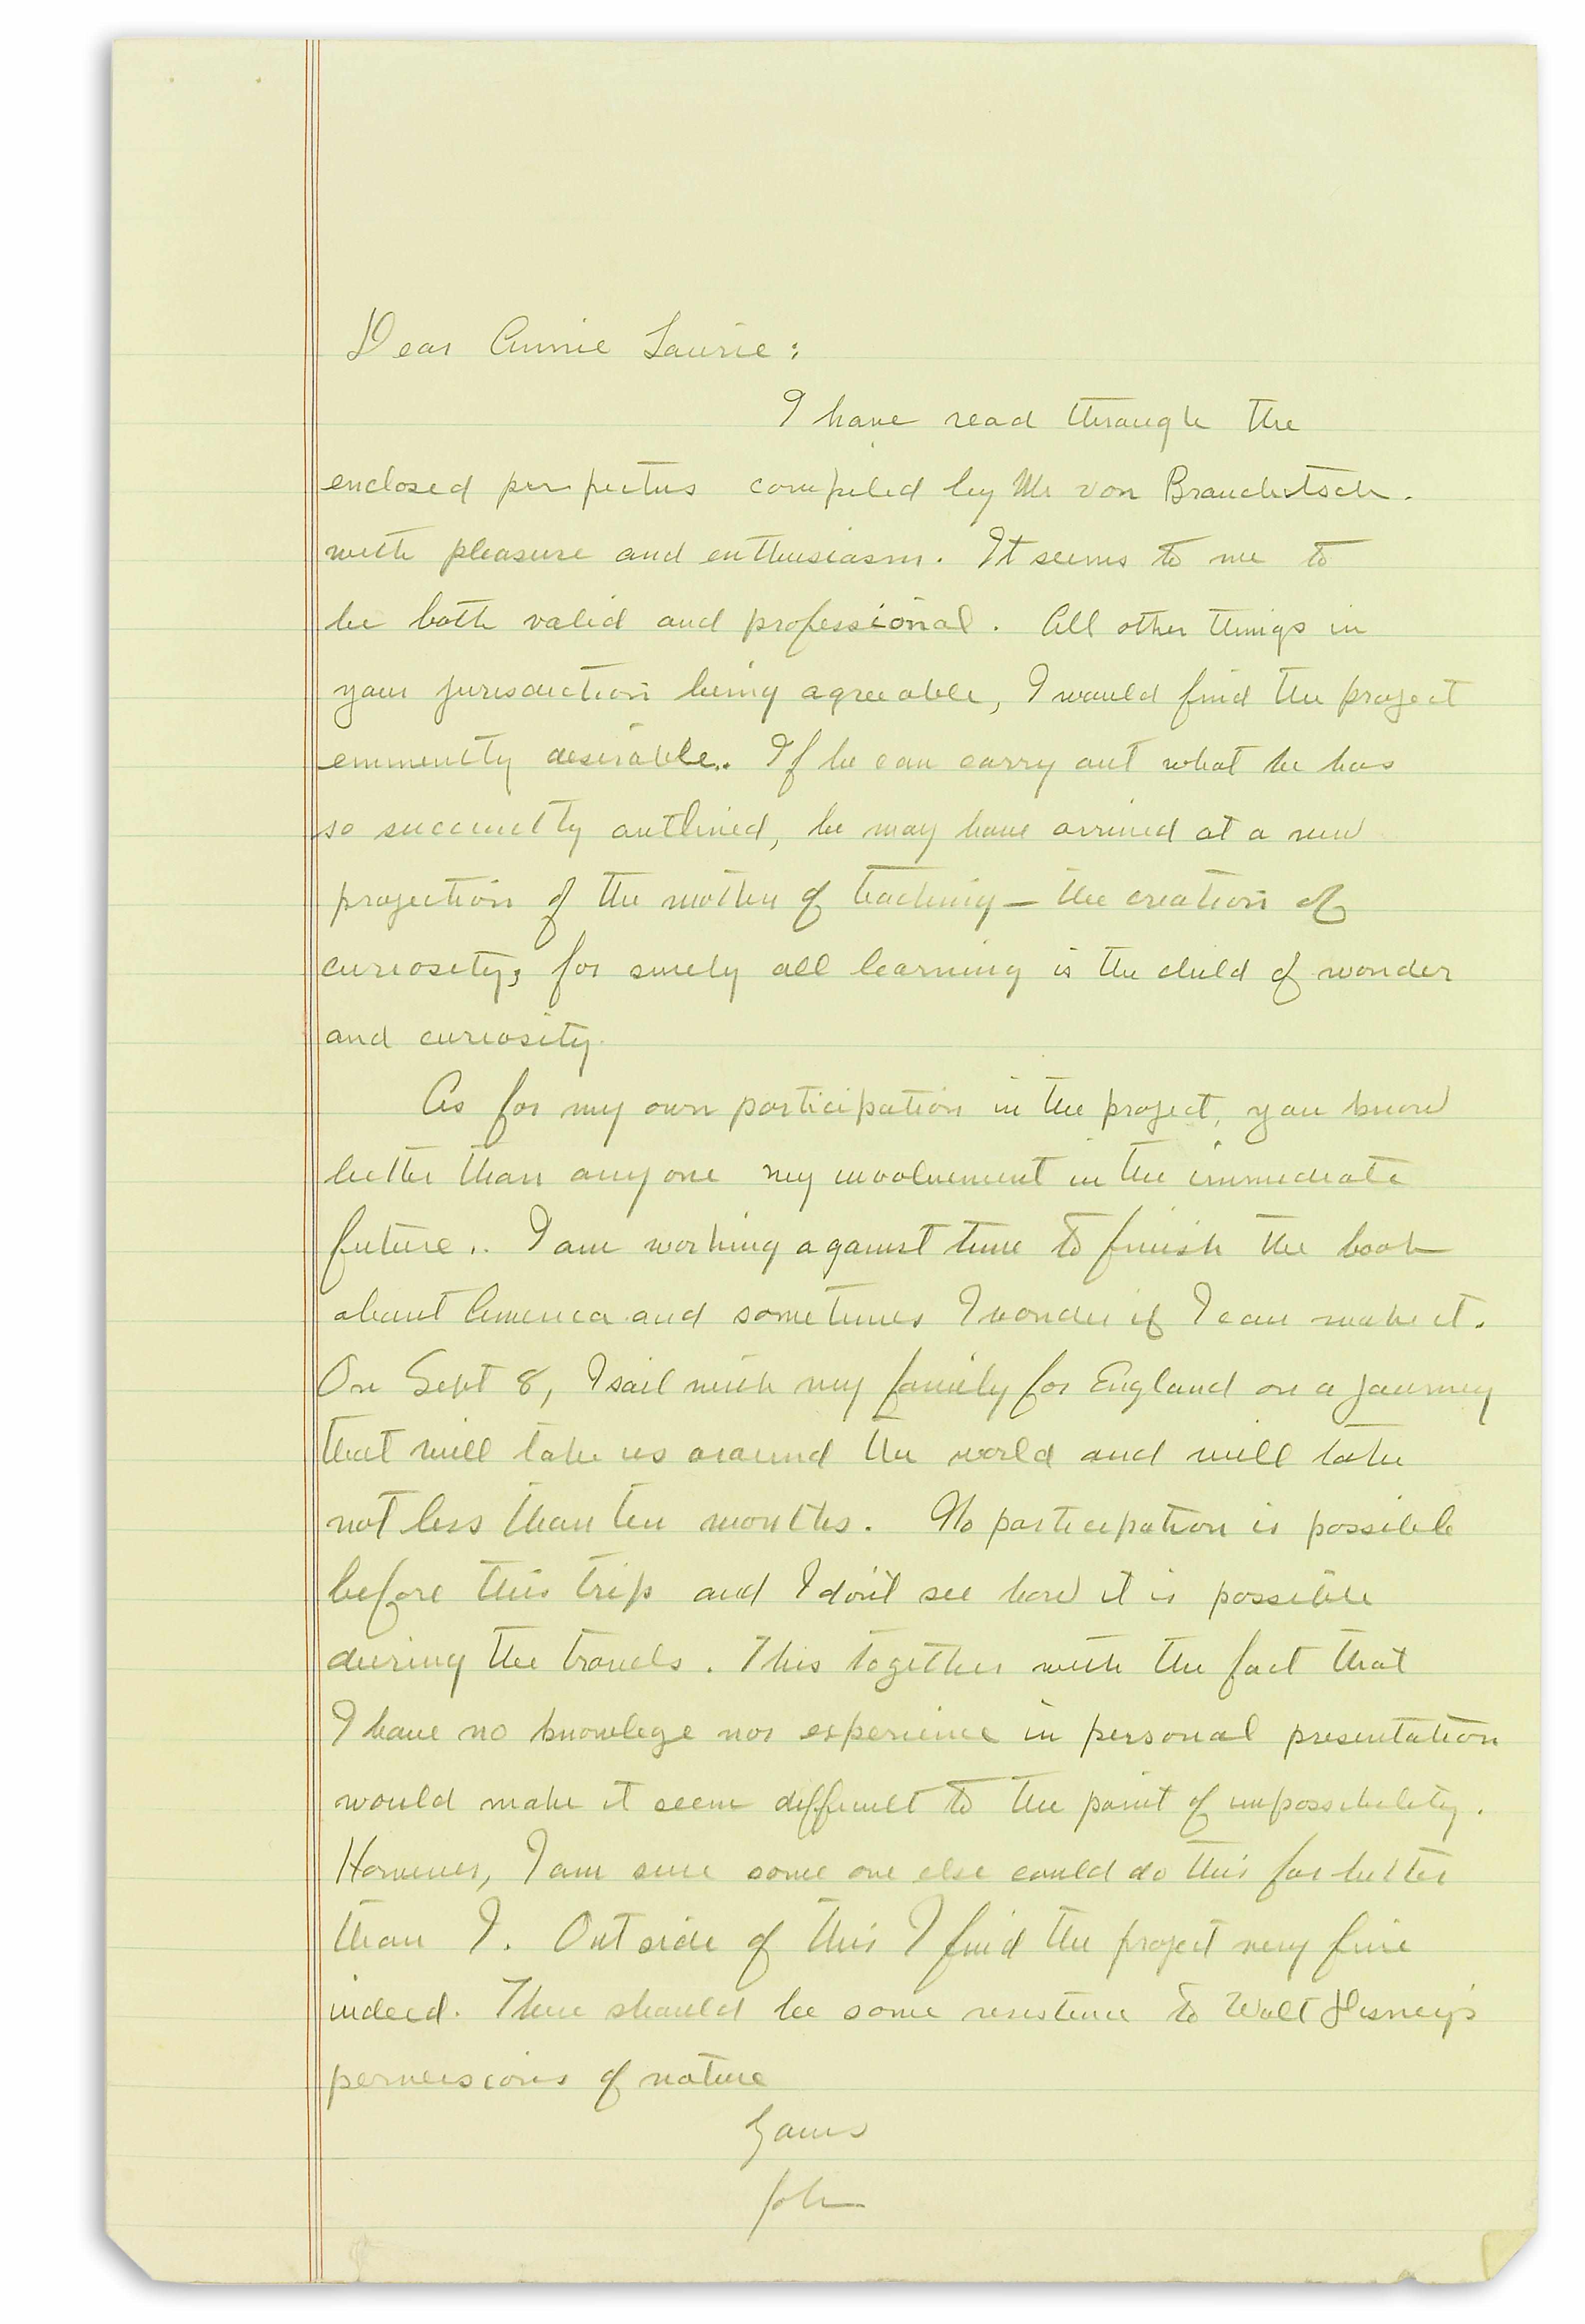 Dear Annie Laurie:
I have read through the
enclosed perspectus compiled by Mr von Brauchitsch.
with pleasure and enthusiasm. It seems to me to
be both valid and professional. All other things in
your jurisdiction being agreeable, I would find the project
eminently desirable.. If he can carry out what he has
so succinctly outlined, he may have arrived at a new
projection of the mother of teaching — the creation of
curiosity; for surely all learning is the child of wonder
and curiosity.
As for my own participation in the project, you know
better than any one my involvement in the immediate
future.. I am working against time to finish the book
about America and sometimes I wonder if I can make it.
On Sept 8, I sail with my family for England on a journey
that will take us around the world and will take
not less than ten months. No participation is possible
before this trip and I don't see how it is possible
during the travels. This together with the fact that
I have no knowlege nor experience in personal presentation
would make it seem difficult to the point of impossibility.
However, I am sure some one else could do this far better
than I. Outside of this I find the project very fine
indeed. There should be some resistence to Walt Disney's
perversions of nature
Yours
John